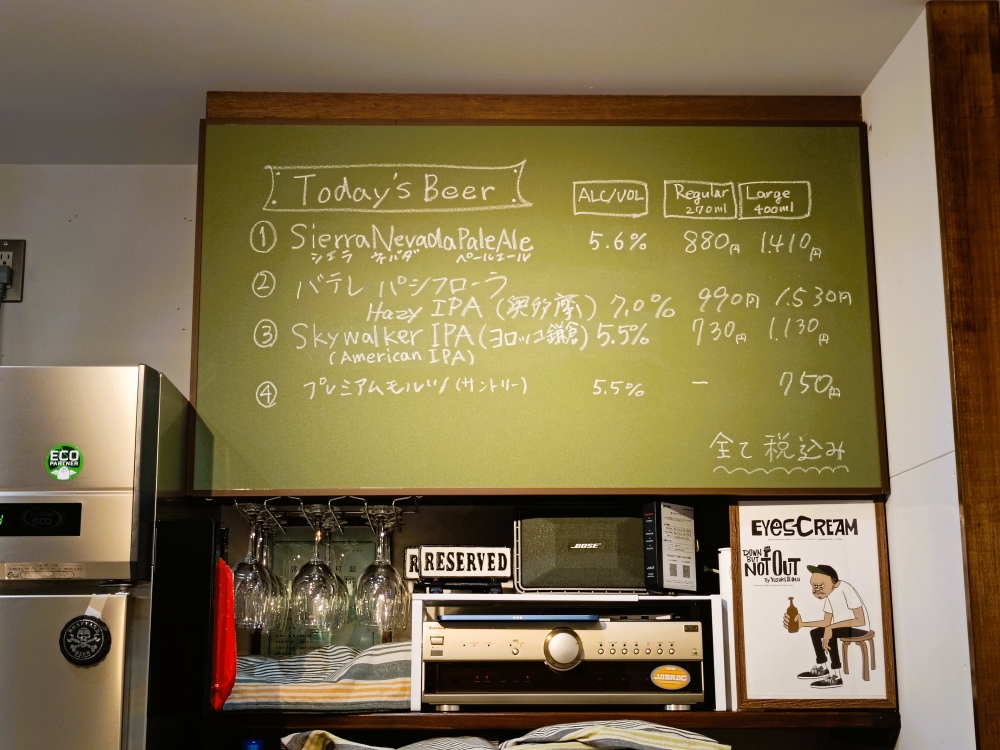 Today's Beer
ALC/VOL
Regular 270ml
Large 400ml
① Sierra Nevada Pale Ale 5.6% 880円 1.410円
シエラ ネバダ ペールエール
② バテレ パシフローラ
Hazy IPA (奥多摩) 7.0% 990円 1.530円
③ Skywalker IPA (ヨロッコ鎌倉) 5.5% 730円 1.130円
(American IPA)
④ プレミアムモルツ (サントリー) 5.5% − 750円
全て税込み
ECO
PARTNER
eco
RESERVED
BOSE
JASRAC
EYESCREAM
DOWN
BUT
NOT OUT